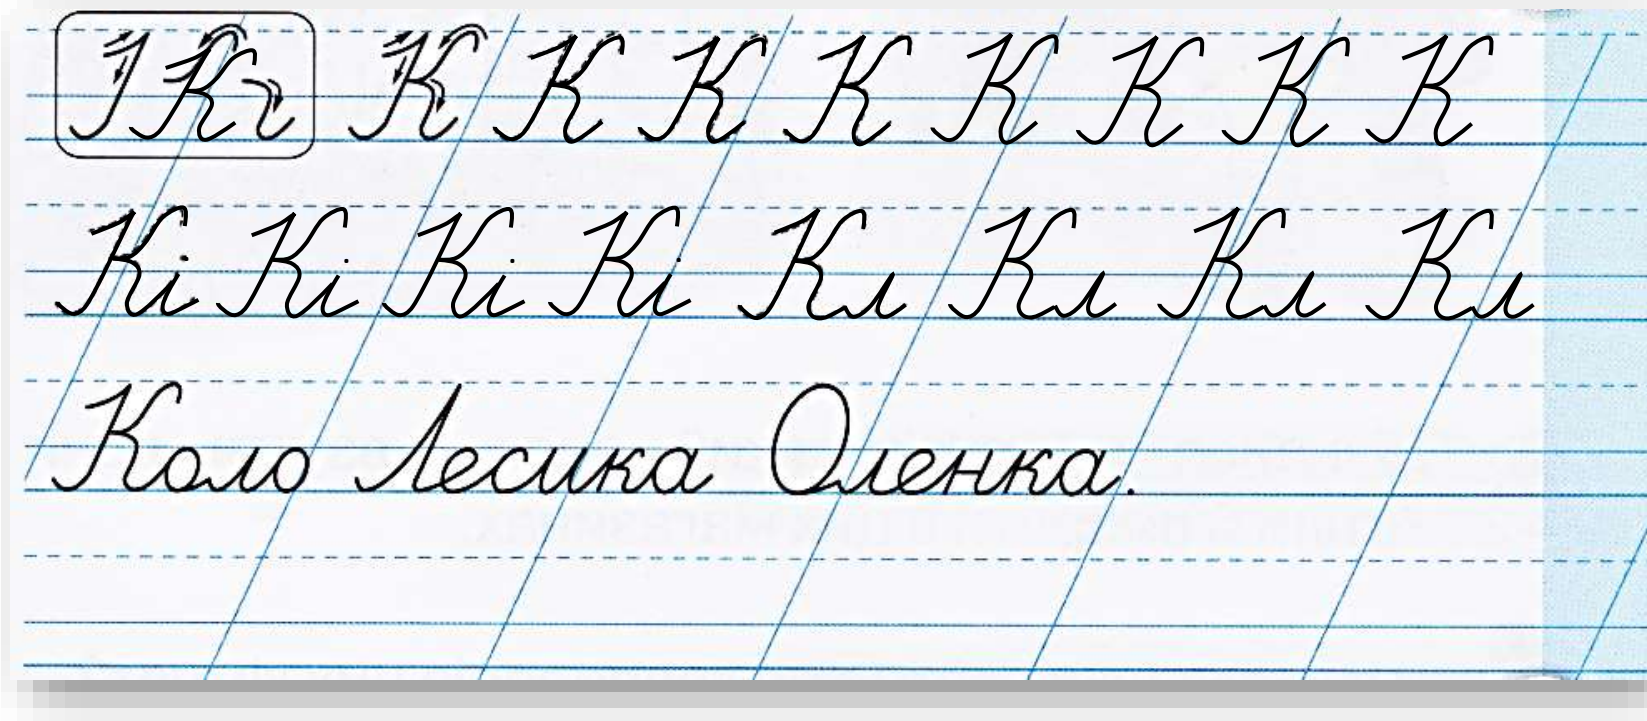 К К К К К К К К К
Кі Кі Кі Кі Кл Кл Кл Кл
Коло Лесика Оленка.